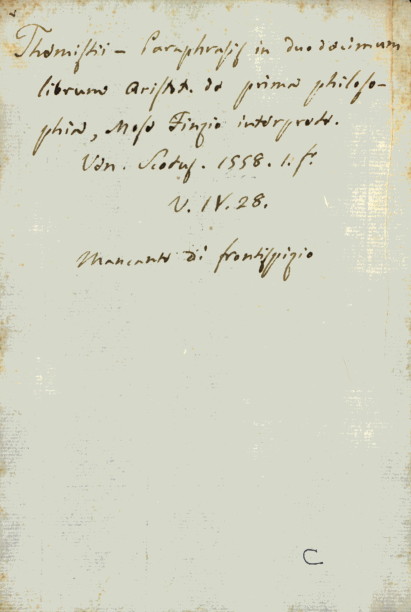 Themistii – Paraphrasis in duodecimum
librum Aristot. de prima philoso-
phia, Mose Finzio interprete.
Ven. Scotus. 1558. 1. f.º
V. IV. 28.
Mancante di frontispizio
C